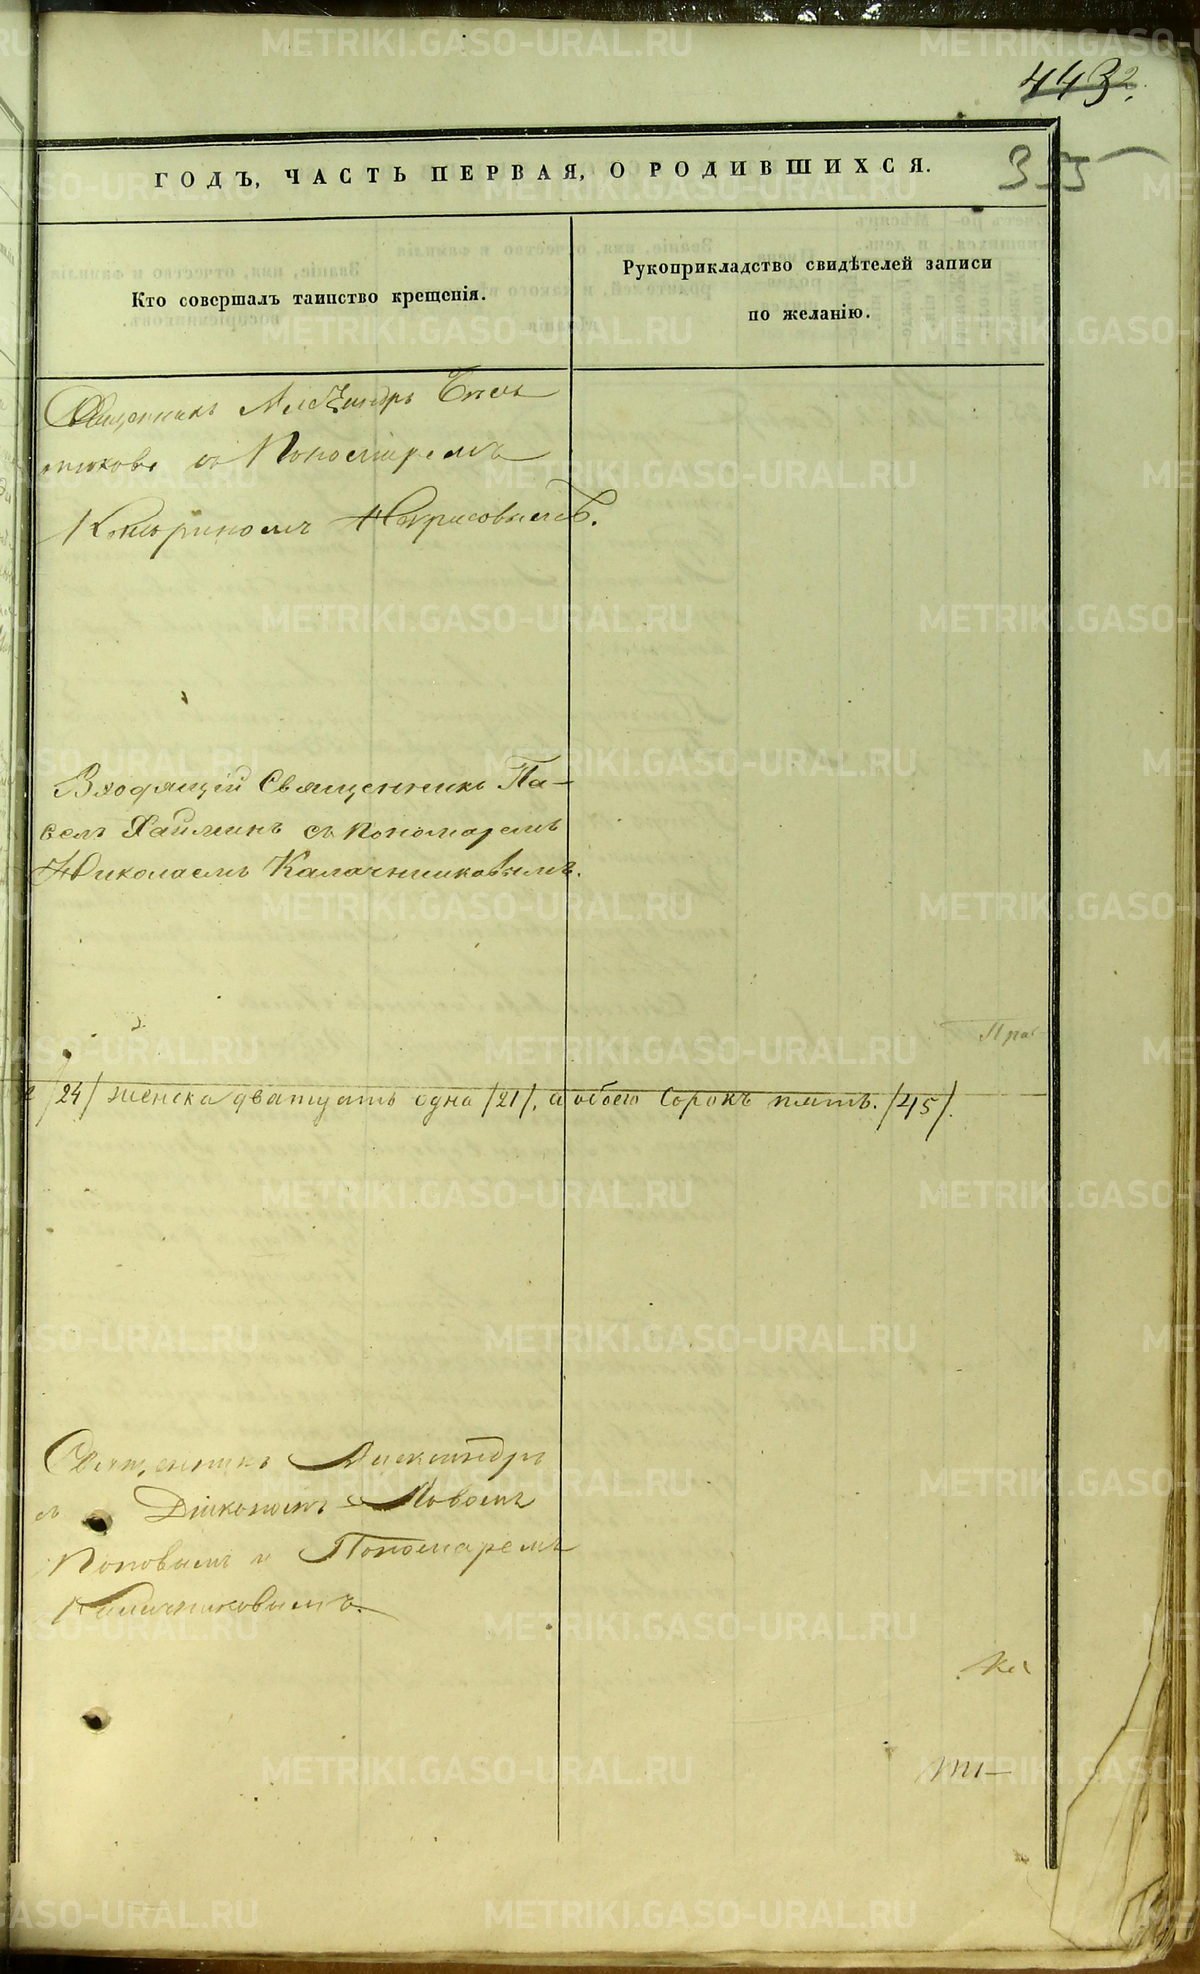 443
335
ГОДЪ, ЧАСТЬ ПЕРВАЯ, О РОДИВШИХСЯ.
Кто совершалъ таинство крещенія.
Рукоприкладство свидѣтелей записи
по желанію.
Священникъ Александръ
съ Пономаремъ
Входящій Священникъ Па-
велъ с пономаремъ
Николаемъ Калачниковымъ.
Пра
/24/ женска дватцать одна /21/, а обоего Сорокъ пять. /45/.
Священникъ Александръ
съ Діакономъ
Поповымъ и Пономаремъ
Калачниковымъ.
METRIKI.GASO-URAL.RU